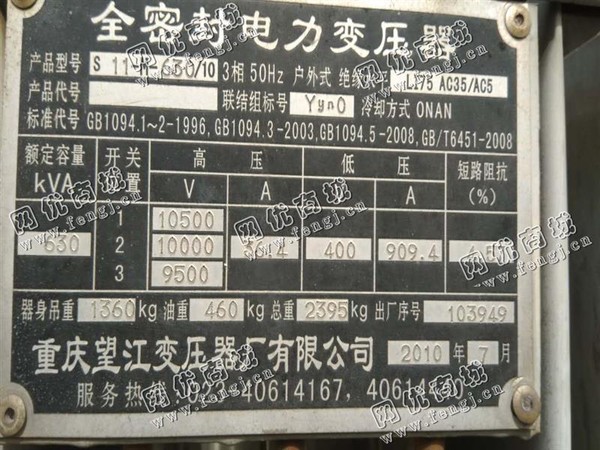 全密封电力变压器
产品型号 S 11-M-630/10 3相 50Hz 户外式 绝缘水平 LI75 AC35/AC5
产品代号 联结组标号 Yyn0 冷却方式 ONAN
标准代号 GB1094.1~2-1996,GB1094.3-2003,GB1094.5-2008,GB/T6451-2008
额定容量 kVA 开关位置 高压 低压 短路阻抗 (%)
V A V A
1 10500
630 2 10000 36.4 400 909.4
3 9500
器身吊重 1360 kg 油重 460 kg 总重 2395 kg 出厂序号 103949
重庆望江变压器厂有限公司 2010 年 7 月
服务热线 40614167, 40614
网优商城
www.fengj.cn